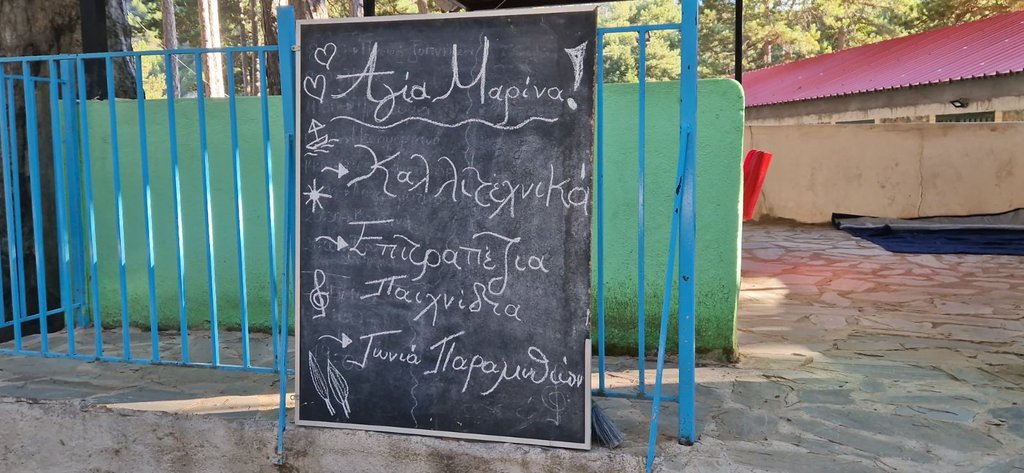 Αγία Μαρίνα!
→ Καλλιτεχνικά
→ Επιτραπέζια
Παιχνίδια
→ Γωνιά Παραμυθιών